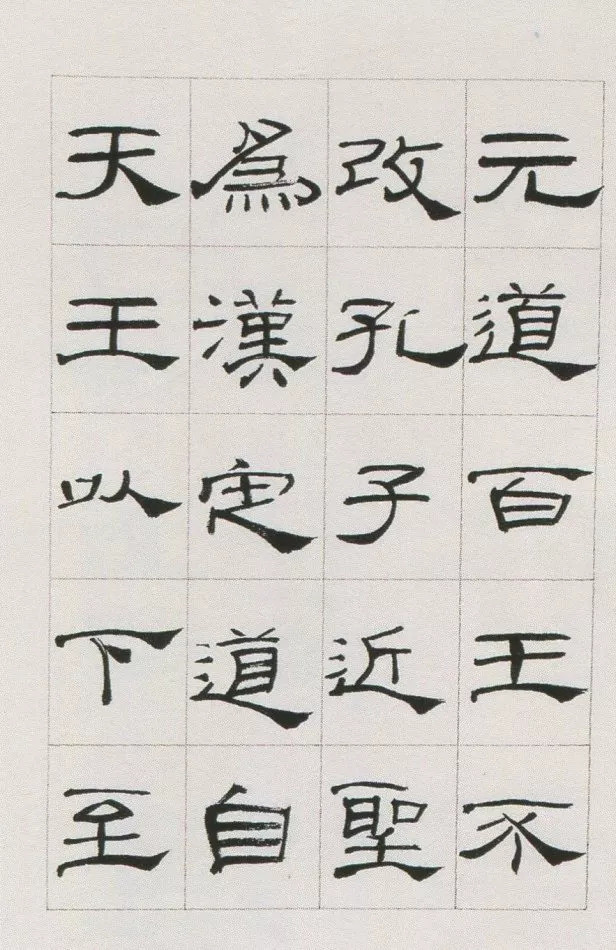 元道百王不
改孔子近聖
為漢定道自
天王以下至